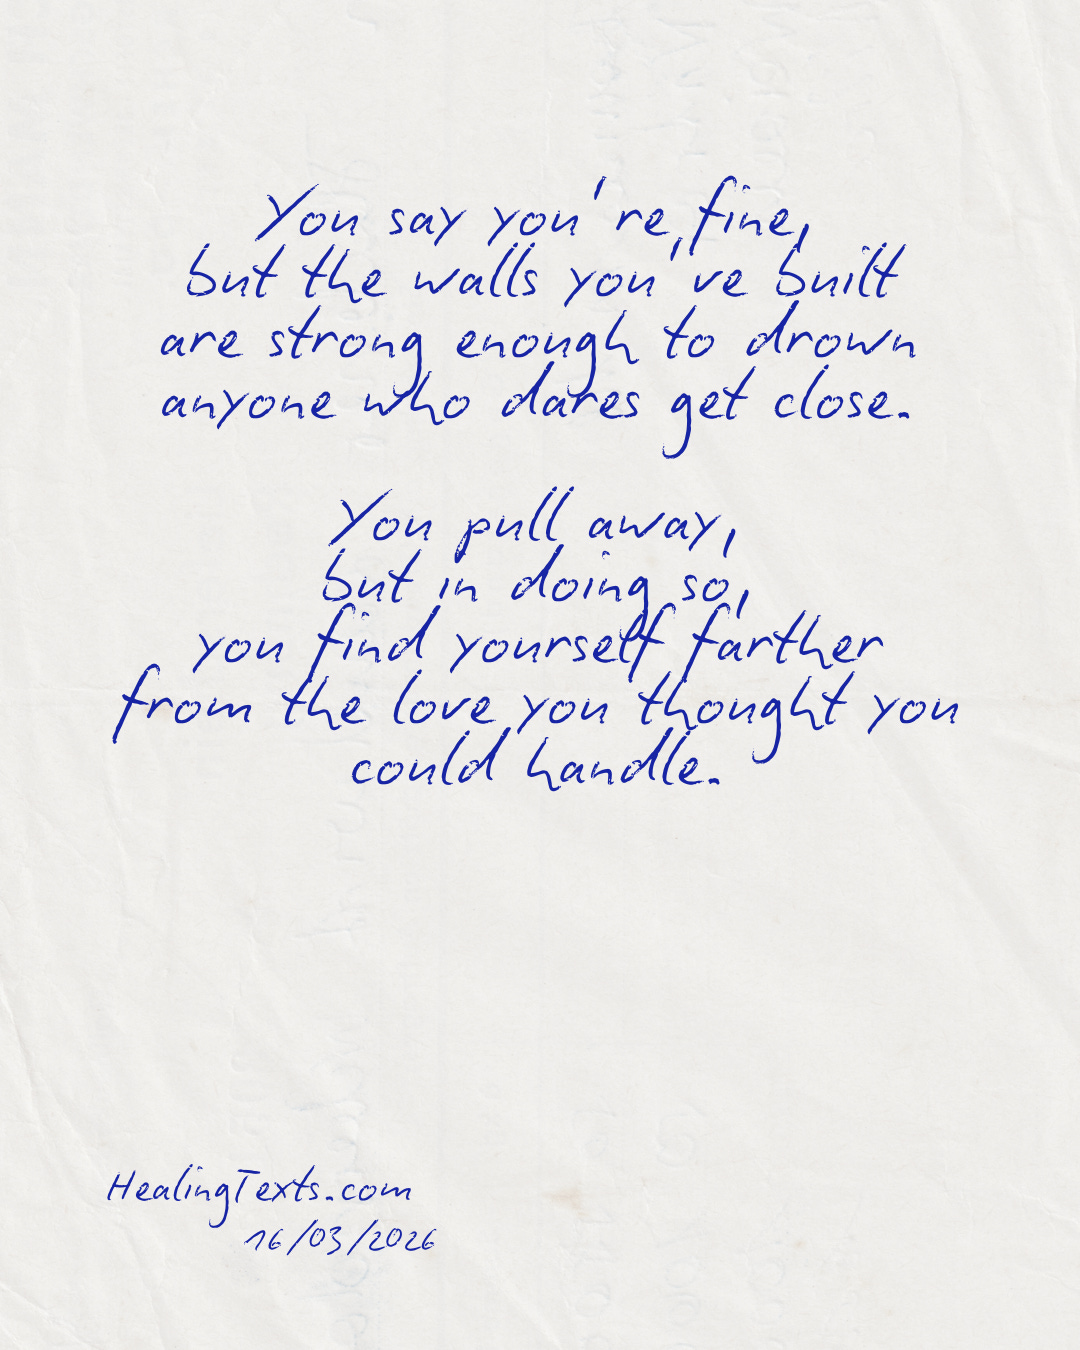 You say you're fine,
but the walls you've built
are strong enough to drown
anyone who dares get close.
You pull away,
but in doing so,
you find yourself farther
from the love you thought you
could handle.
HealingTexts.com
16/03/2026